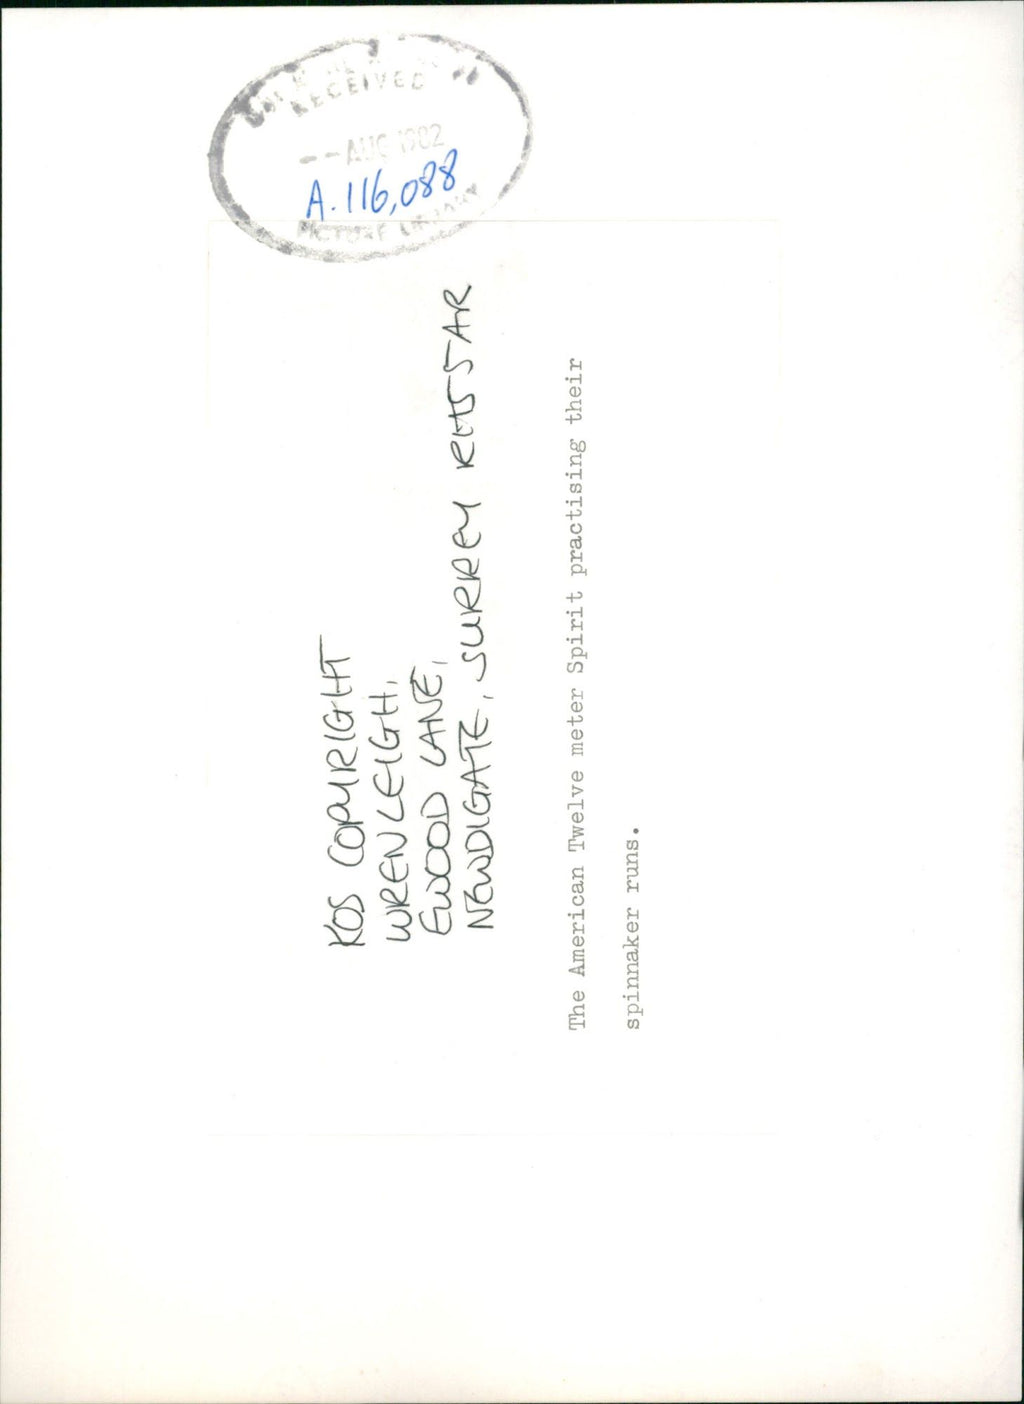 RECEIVED
-- AUG 1982
A.116,088
PICTURE LIBRARY
KOS COPYRIGHT
WRENLEIGH,
EWOOD LANE,
NEWDIGATE, SURREY RH5 5AR
The American Twelve meter Spirit practising their
spinnaker runs.